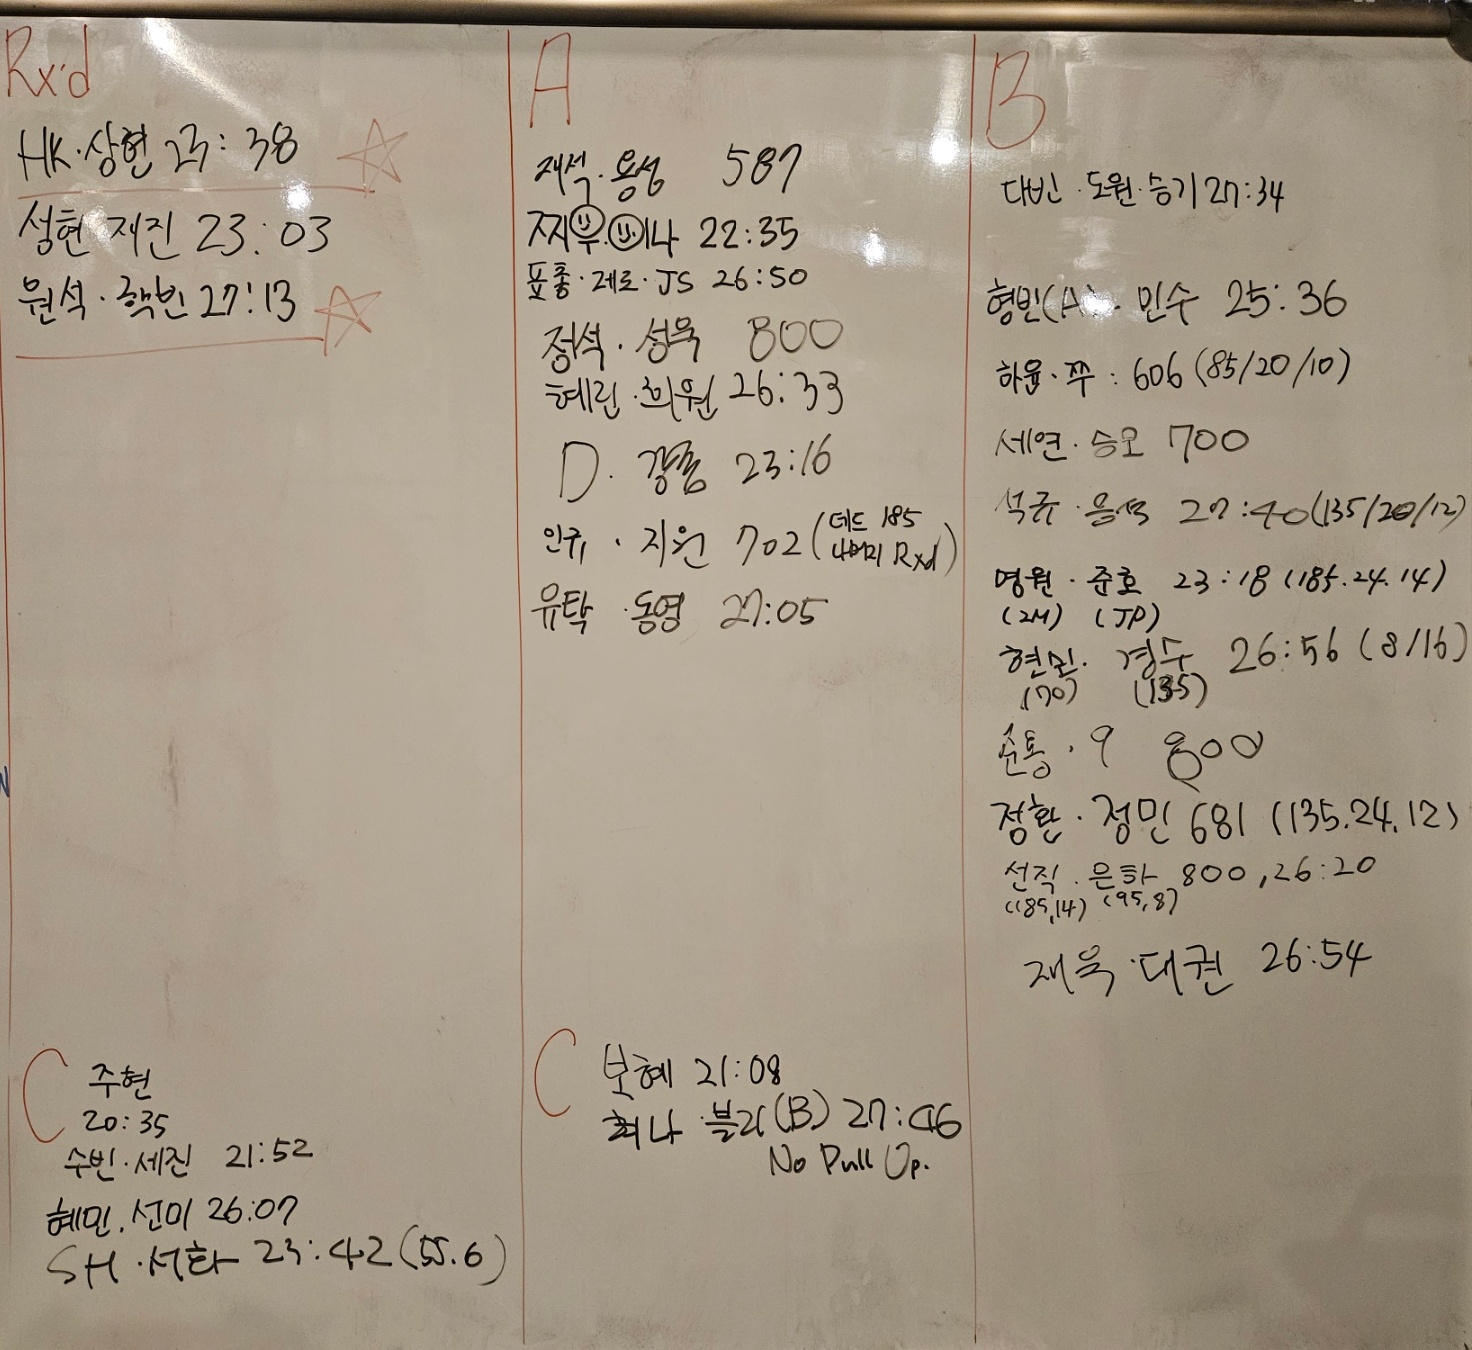 Rx'd
HK·상현 23:38
성현 재진 23:03
원석·핵빈 27:13
A
재석·용성 587
찌우·나 22:35
표총·제로·JS 26:50
정석·성욱 800
혜린·희원 26:33
D. 강흠 23:16
인규·지원 702 (데드 185
나머지 Rxd)
유탁·동영 27:05
B
다빈·도원·승기 27:34
형빈(A)·민수 25:36
하윤·쭈: 606 (85/20/10)
세연·승모 700
석규·용석 27:40 (135/20/12)
영원·준호 23:18 (185.24.14)
(2M) (JP)
현민·경수 26:56 (8/16)
(70) (135)
준통·9 800
정환·정민 681 (135.24.12)
선직·은하 800, 26:20
(185,14) (95,8)
재욱·대권 26:54
C 주현
20:35
수빈·세진 21:52
혜민, 선미 26:07
SH·서화 23:42 (55.6)
C 보혜 21:08
희나·블리(B) 27:46
No Pull Up.